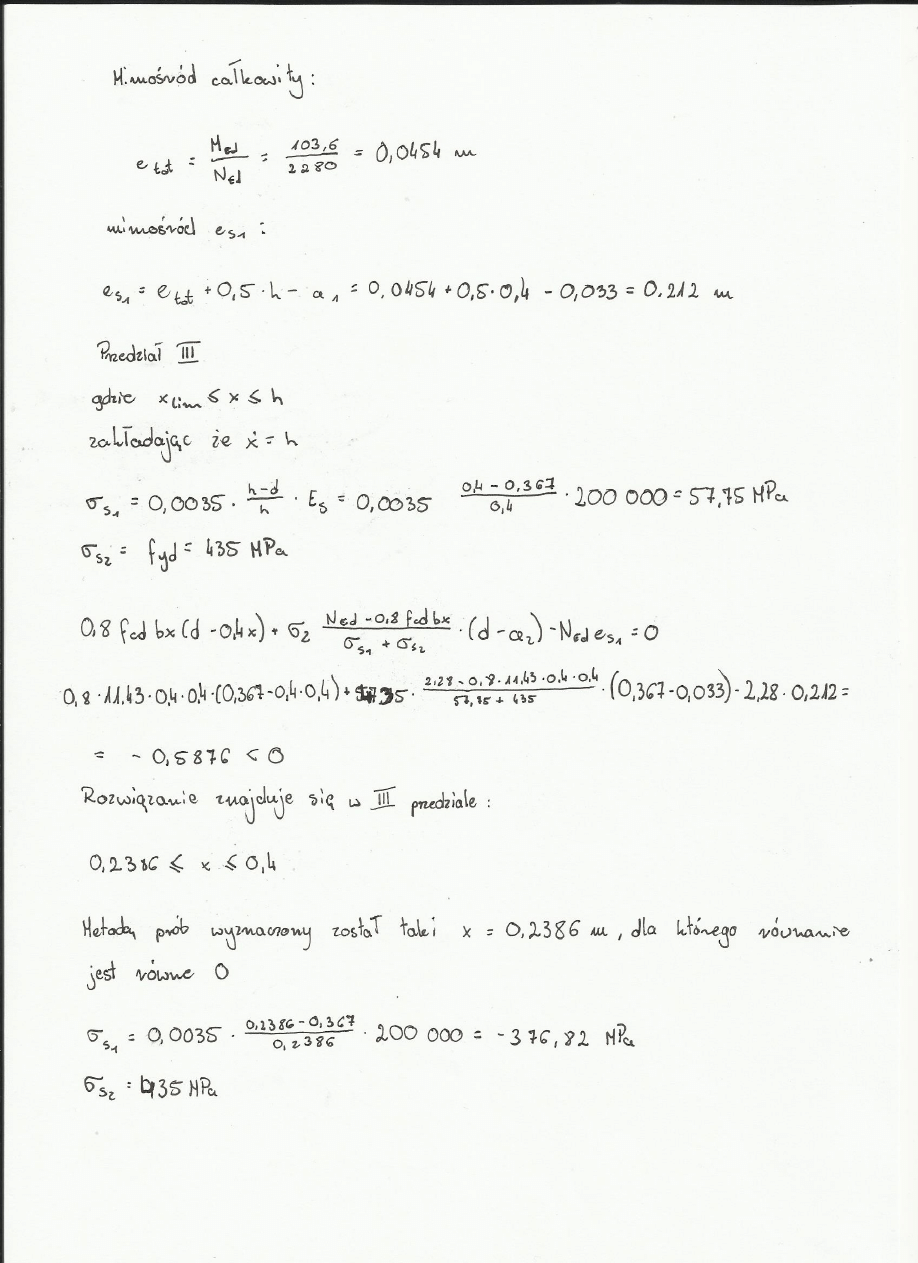 Mimośród całkowity :
e_tot = M_Ed / N_Ed = 103,6 / 2280 = 0,0454 m
mimośród e_s1 :
e_s1 = e_tot + 0,5 · h - a_1 = 0,0454 + 0,5 · 0,4 - 0,033 = 0.212 m
Przedział III
gdzie x_lim ≤ x ≤ h
zakładając że x = h
σ_s1 = 0,0035 · (h-d)/h · E_s = 0,0035 (0,4 - 0,367)/0,4 · 200 000 = 57,75 MPa
σ_s2 = fyd = 435 MPa
0,8 fcd bx (d - 0,4x) + σ_2 (N_Ed - 0,8 fcd bx)/(σ_s1 + σ_s2) · (d - a_2) - N_Ed e_s1 = 0
0,8 · 11,43 · 0,4 · 0,4 · (0,367 - 0,4 · 0,4) + 435 · (2,28 - 0,8 · 11,43 · 0,4 · 0,4)/(57,75 + 435) · (0,367 - 0,033) - 2,28 · 0,212 =
= - 0,5876 < 0
Rozwiązanie znajduje się w III przedziale :
0,2386 ≤ x ≤ 0,4
Metodą prób wyznaczony został taki x = 0,2386 m, dla którego równanie
jest równe 0
σ_s1 = 0,0035 · (0,2386 - 0,367)/0,2386 · 200 000 = - 376,82 MPa
σ_s2 = 435 MPa